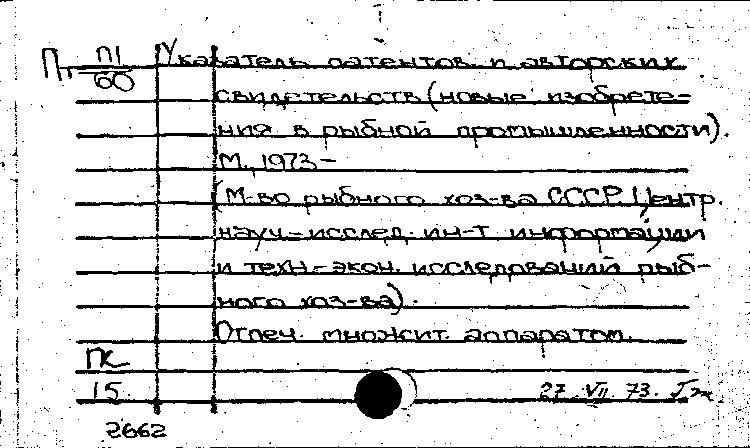 П1
П, 60
Указатель патентов и авторских
свидетельств (новые изобрете-
ния в рыбной промышленности).
М., 1973–
(М-во рыбного хоз-ва СССР. Центр.
науч.-исслед. ин-т информации
и техн.-экон. исследований рыб-
ного хоз-ва).
Отпеч. множит. аппаратом.
ПК
15
27. VII. 73.
2662